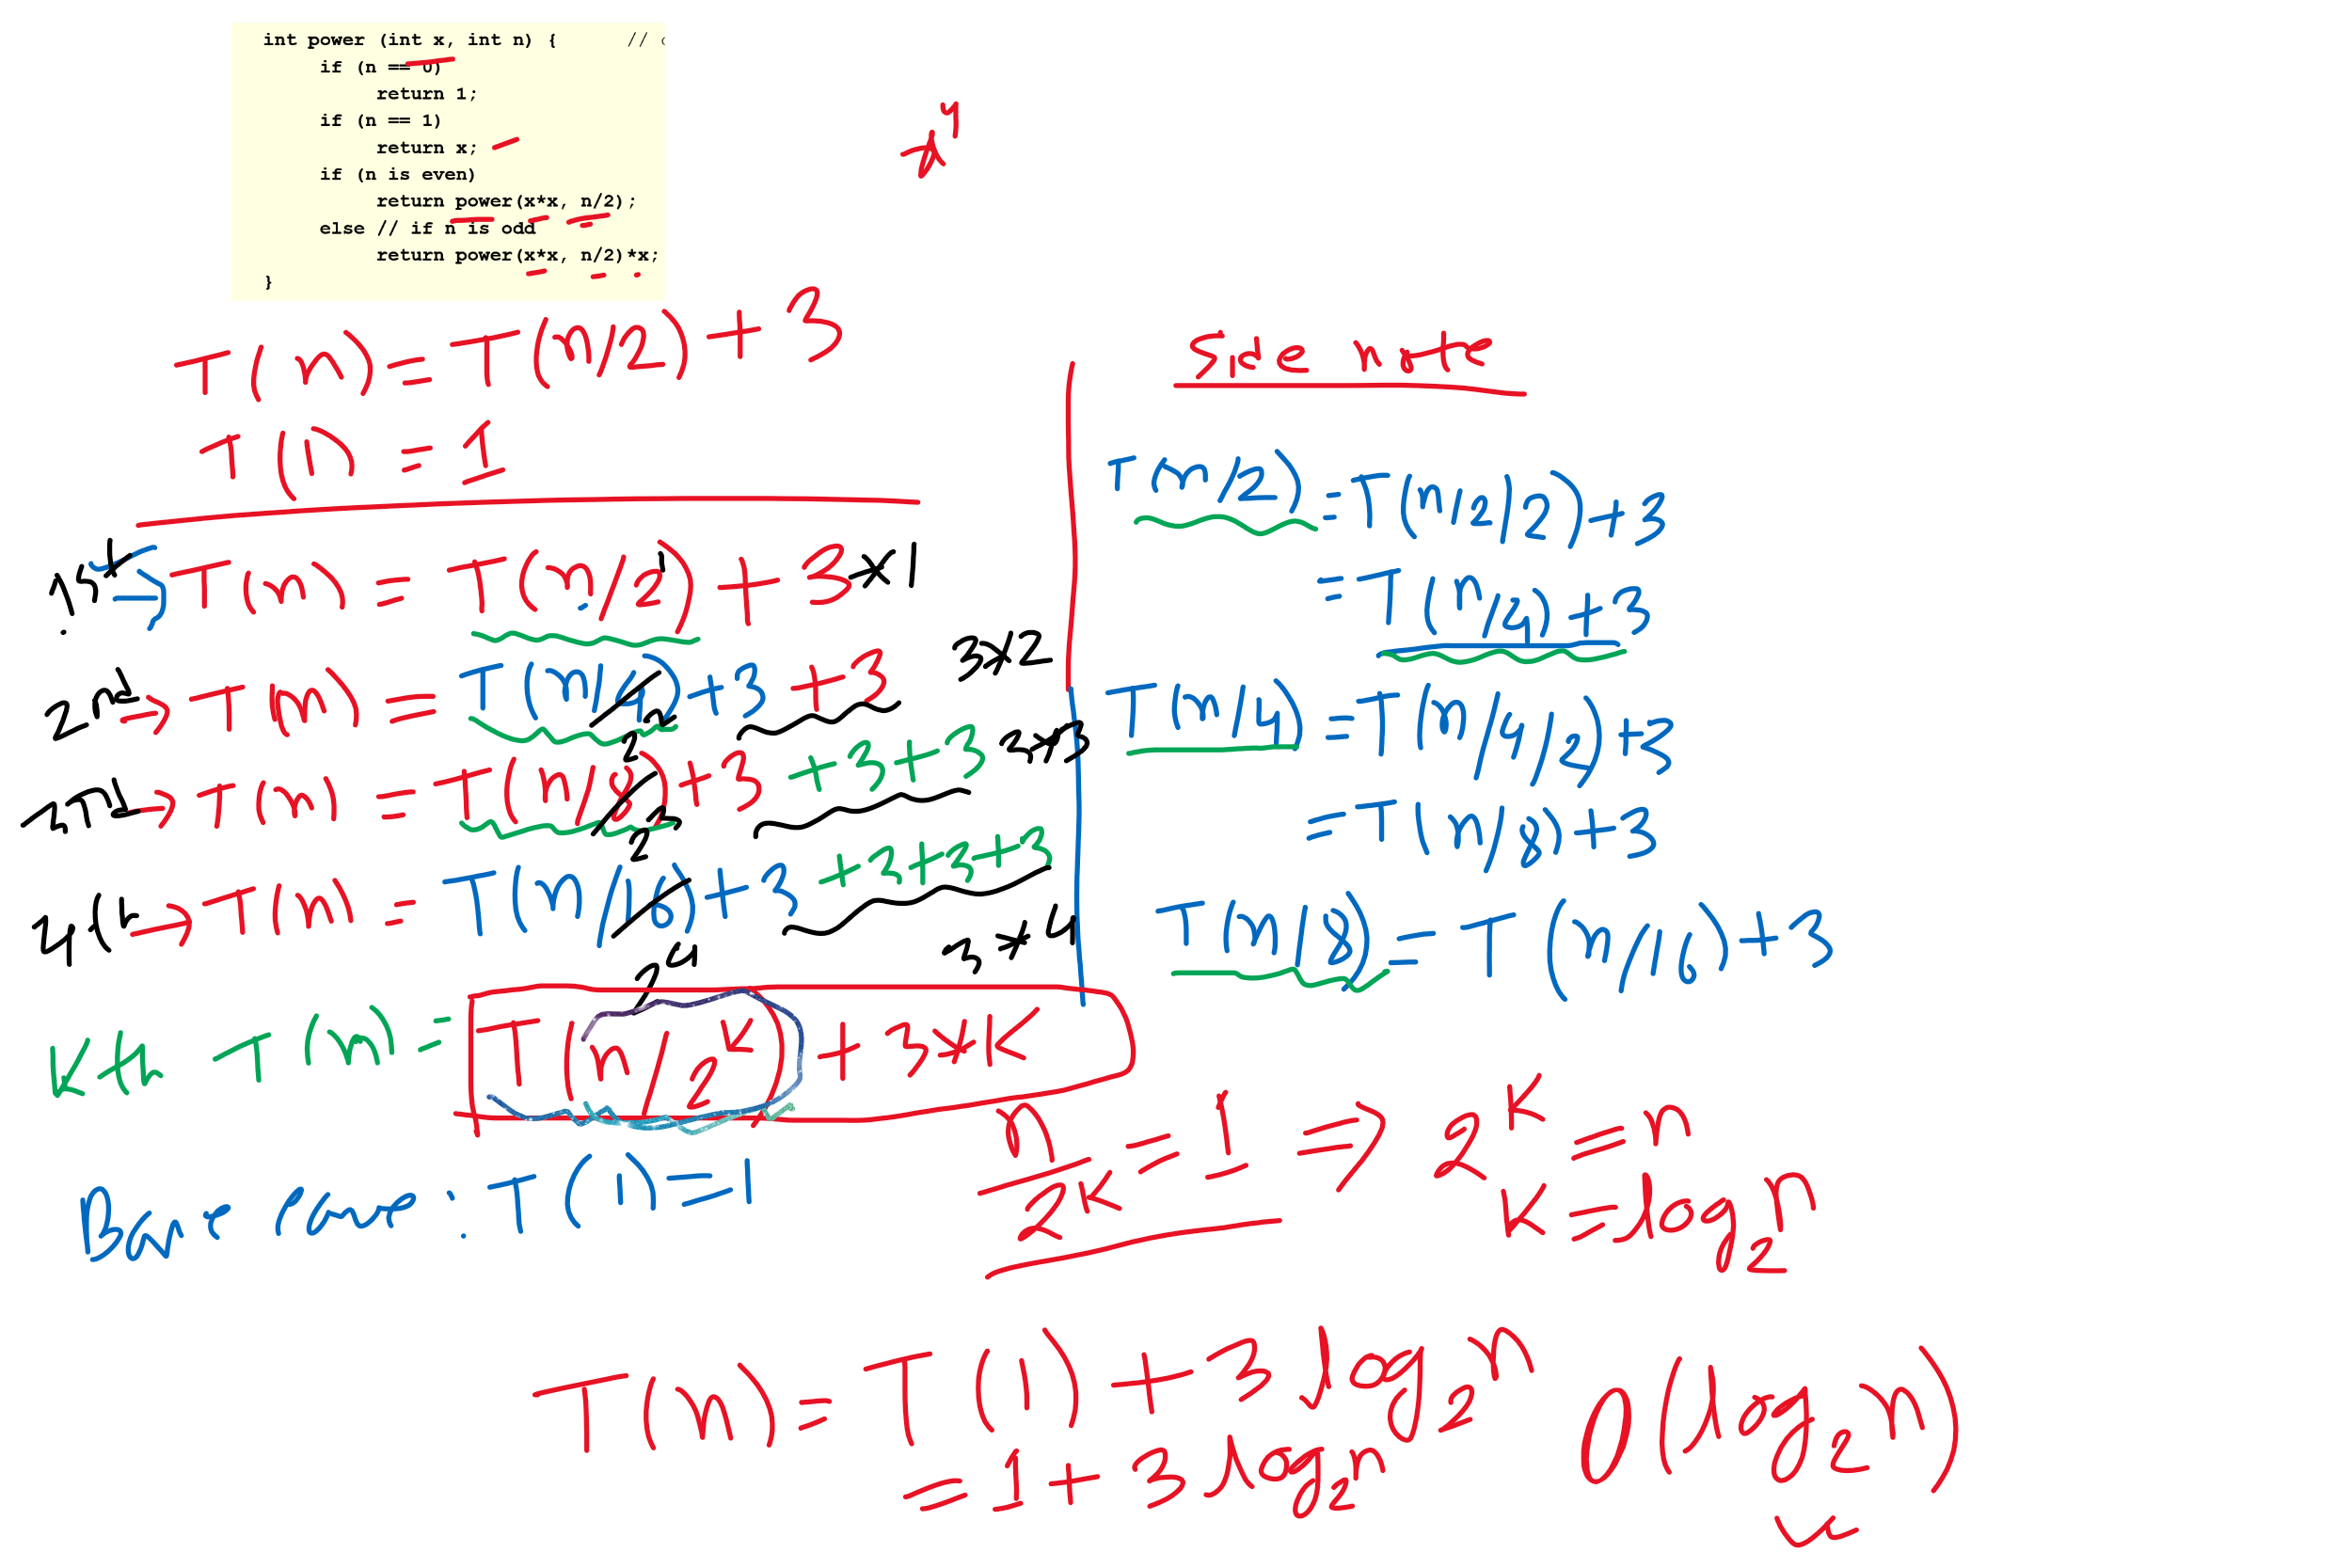 int power (int x, int n) { //
if (n == 0)
return 1;
if (n == 1)
return x;
if (n is even)
return power(x*x, n/2);
else // if n is odd
return power(x*x, n/2)*x;
}
T(n) = T(n/2) + 3
T(1) = 1
1st → T(n) = T(n/2¹) + 3 * 1
2nd → T(n) = T(n/4) + 3 + 3 3*2
2²
3rd → T(n) = T(n/8) + 3 + 3 + 3 3*3
2³
4th → T(n) = T(n/16) + 3 + 3 + 3 + 3
2⁴ 3*4
Kth T(n) = T(n/2ᴷ) + 3*K
Base case : T(1) = 1
Side note
T(n/2) = T(n/2/2) + 3
= T(n/4) + 3
T(n/4) = T(n/4/2) + 3
= T(n/8) + 3
T(n/8) = T(n/16) + 3
n/2ᴷ = 1 => 2ᴷ = n
K = log₂n
T(n) = T(1) + 3 log₂n
= 1 + 3 log₂n
O(log₂n)